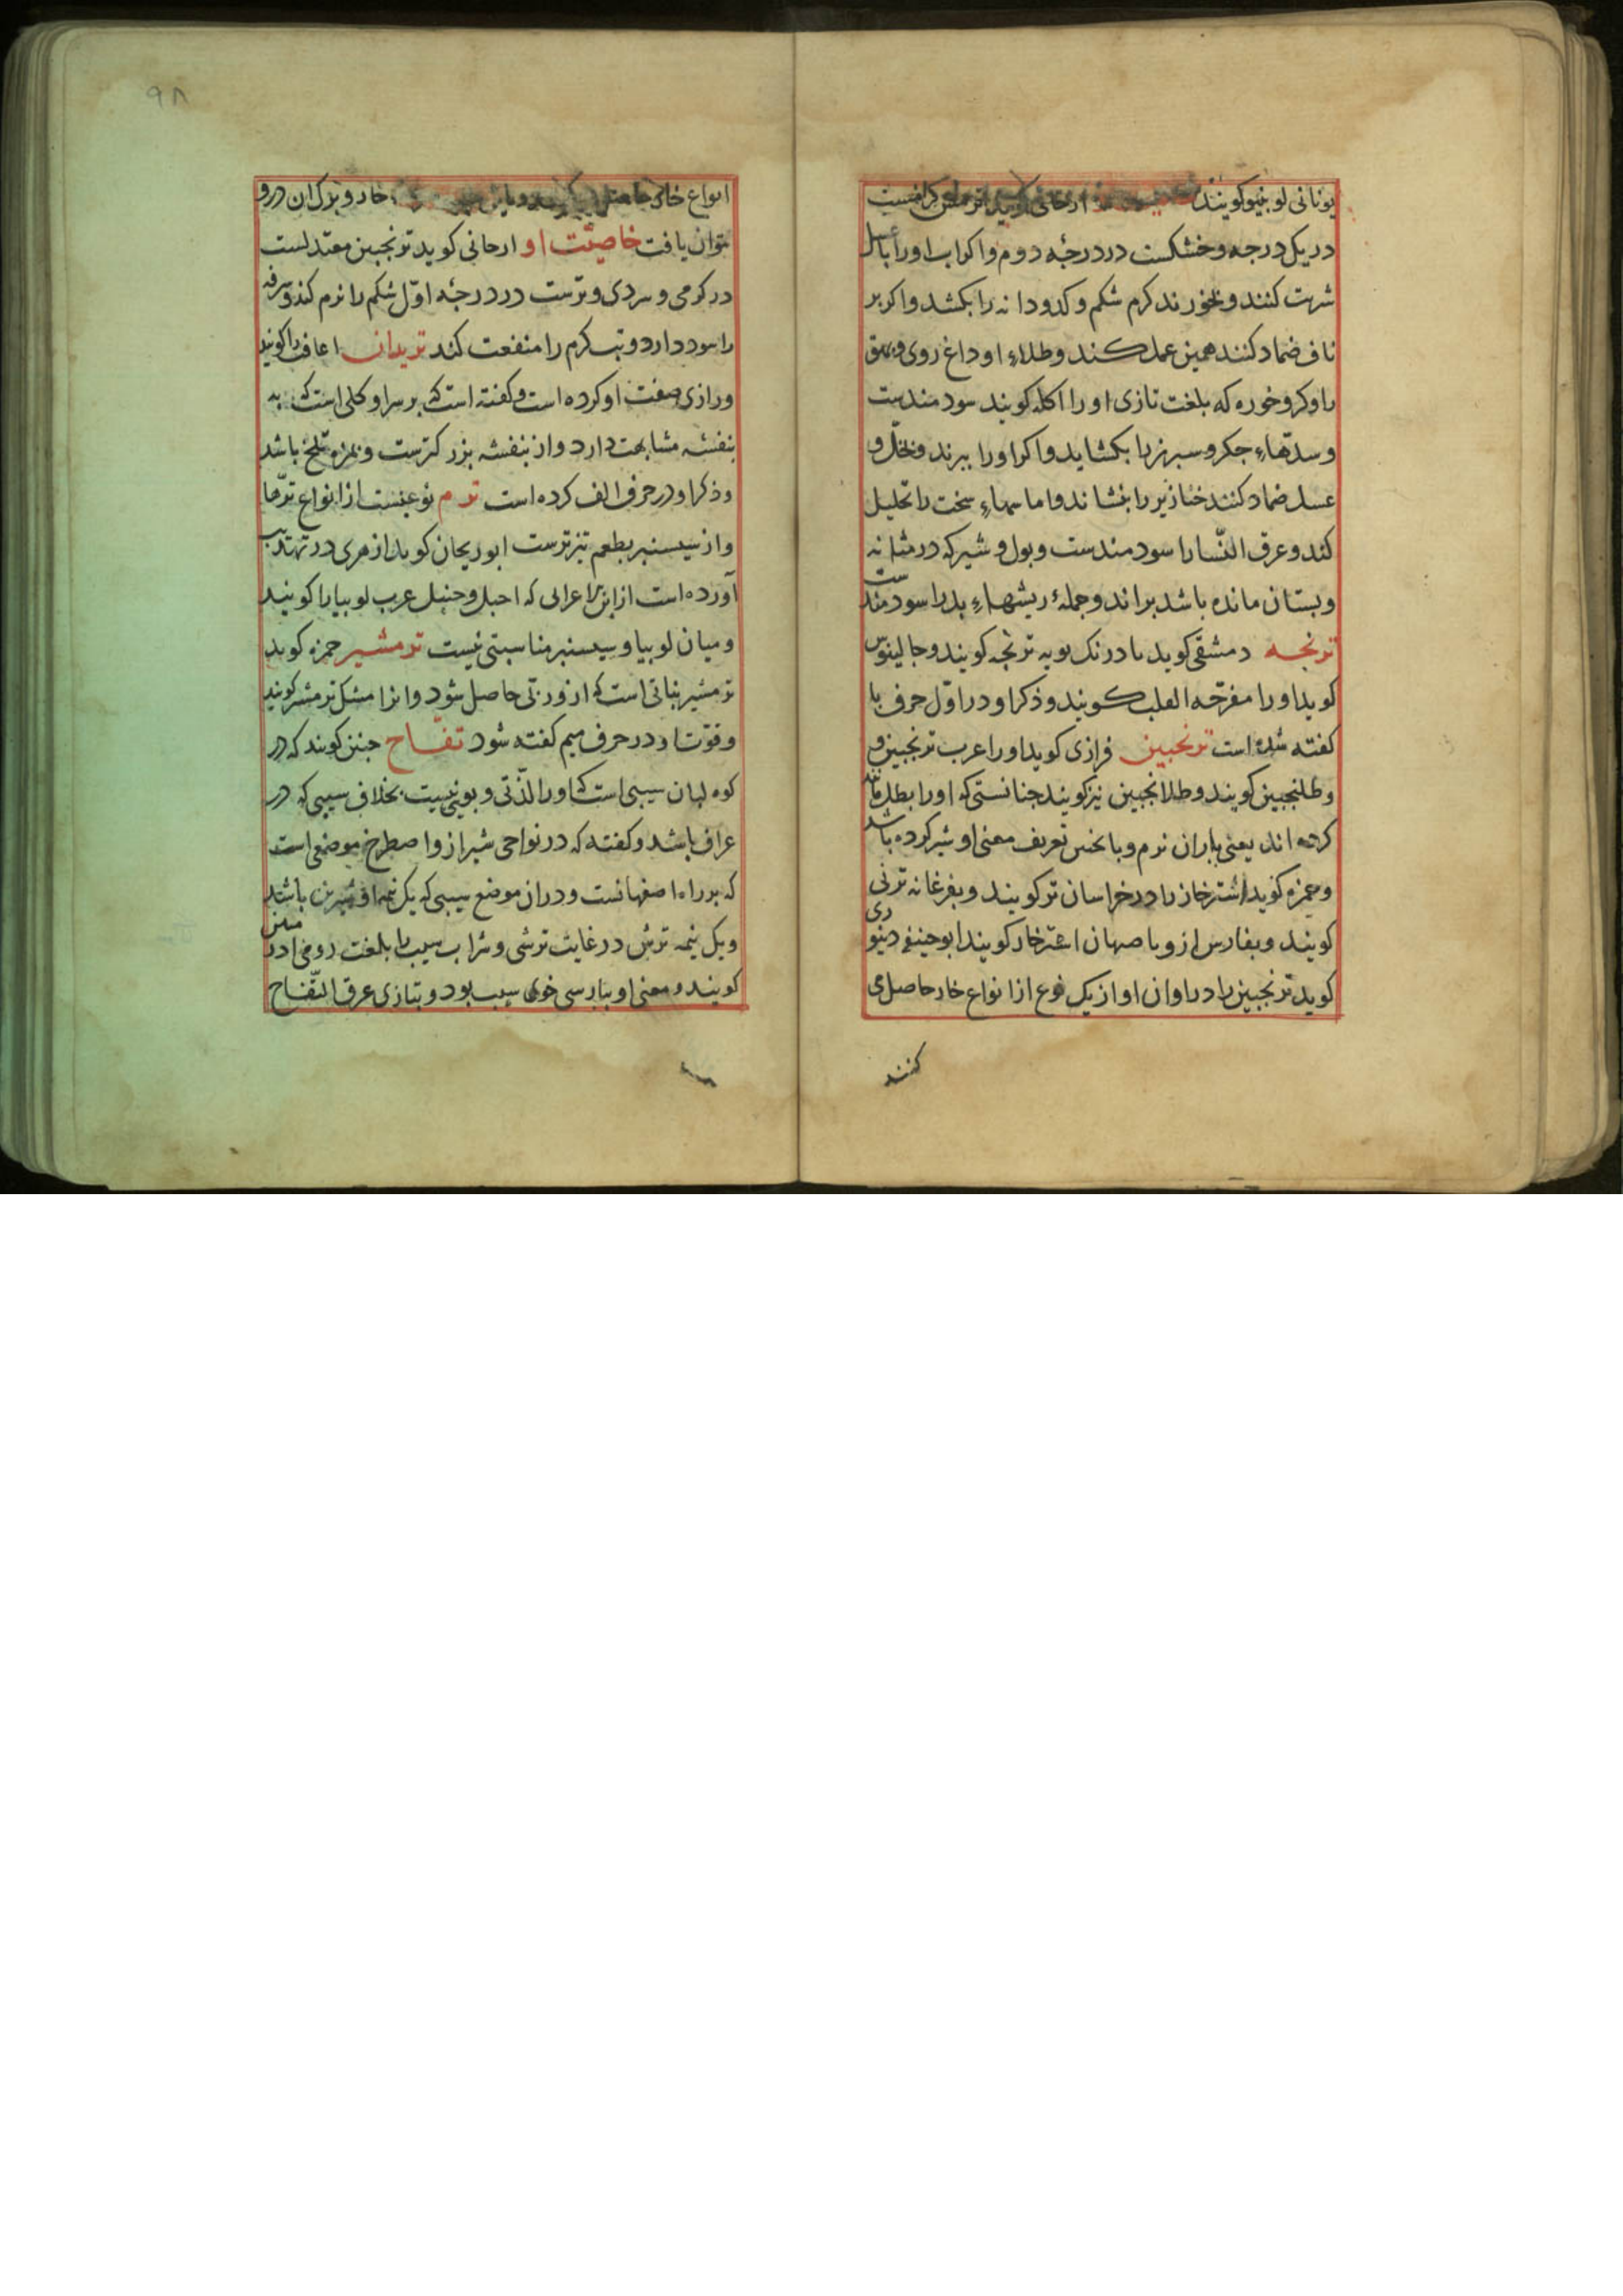 یونانی لوبنیو کویند ارجانی کوید ترمس کرمست
در یک درجه و خشکست در درجۀ دوم و اکر اب اورا با عسل
شربت کنند و بخورند کرم شکم و کدودانه را بکشد و اکر بر
ناف ضماد کنند همین عمل کند و طلاءِ او داغ روی و بهق
را و کر و خوره که بلغت تازی اورا اکله کویند سودمندست
و سدّهاءِ جکر و سبرز را بکشاید و اکر اورا ببزند و بخل و
عسل ضماد کنند خنازیر را بنشاند و اماسهاءِ سخت را تحلیل
کند و عرق النّسا را سودمندست و بول و شیر که در مثانه
و بستان مانده باشد براند و جملۀ ریشهاءِ بد را سودمندست
ترنجه دمشقی کوید بادرنک بویه ترنجه کویند و جالینوس
کوید اورا مفرّحه القلب کویند و ذکر او در اوّل حرف با
کفته شده است ترنجبین فزاری کوید اورا عرب ترنجبین و
و طلنجبین کویند و طلانجبین نیز کویند جنانستی که اورا بطل مانند
کرده اند یعنی باران نرم و بانجبین تعریف معنی او شیر کرده باشد
و حمزه کوید اشترخار را در خراسان تر کویند و بفرغانه ترنی
کویند و بفارس ازو باصبهان اشترخار کویند ابوحنیفه دینوری
کوید ترنجبین را در اوان او از یک نوع از انواع خار حاصل می
کنند
۹۸
انواع خار خار و بزک ان درو
نتوان یافت خاصیّت او ارجانی کوید ترنجبین معتدلست
در کرمی و سردی و ترست در درجۀ اوّل شکم را نرم کند و سرفه
را سود دارد و تب کرم را منفعت کند تریدان اغافت را کویند
و رازی صفت او کرده است و کفته است که بر سر او کلی است که به
بنفشه مشابهت دارد و از بنفشه بزرکترست و بمزه تلخ باشد
و ذکر او در حرف الف کرده است ترم نوعیست از انواع ترّها
و از سیسنبر بطعم تیزترست ابوریحان کوید ازهری در تهذیب
آورده است از ابن اعرابی که احبل و حنبل عرب لوبیا را کویند
و میان لوبیا و سیسنبر مناسبتی نیست ترمشیر حمزه کوید
ترمشیر نباتی است که از وربی حاصل شود و انرا مشک ترمشیر کویند
و قوّت او در حرف میم کفته شود تفّاح جنین کویند که در
کوه لبان سیبی است که اورا لذّتی و بویی نیست بخلاف سیبی که در
عراق باشد و کفته که در نواحی شیراز و اصطرخ موضعی است
که بر راه اصفهانست و در ان موضع سیبی که یک نیمه او شیرین باشد
و یک نیمه ترش در غایت ترشی و شراب سیب را بلغت رومی ادرو
کویند و معنی او ببارسی خوی سیب بود و بتازی عرق التّفّاح